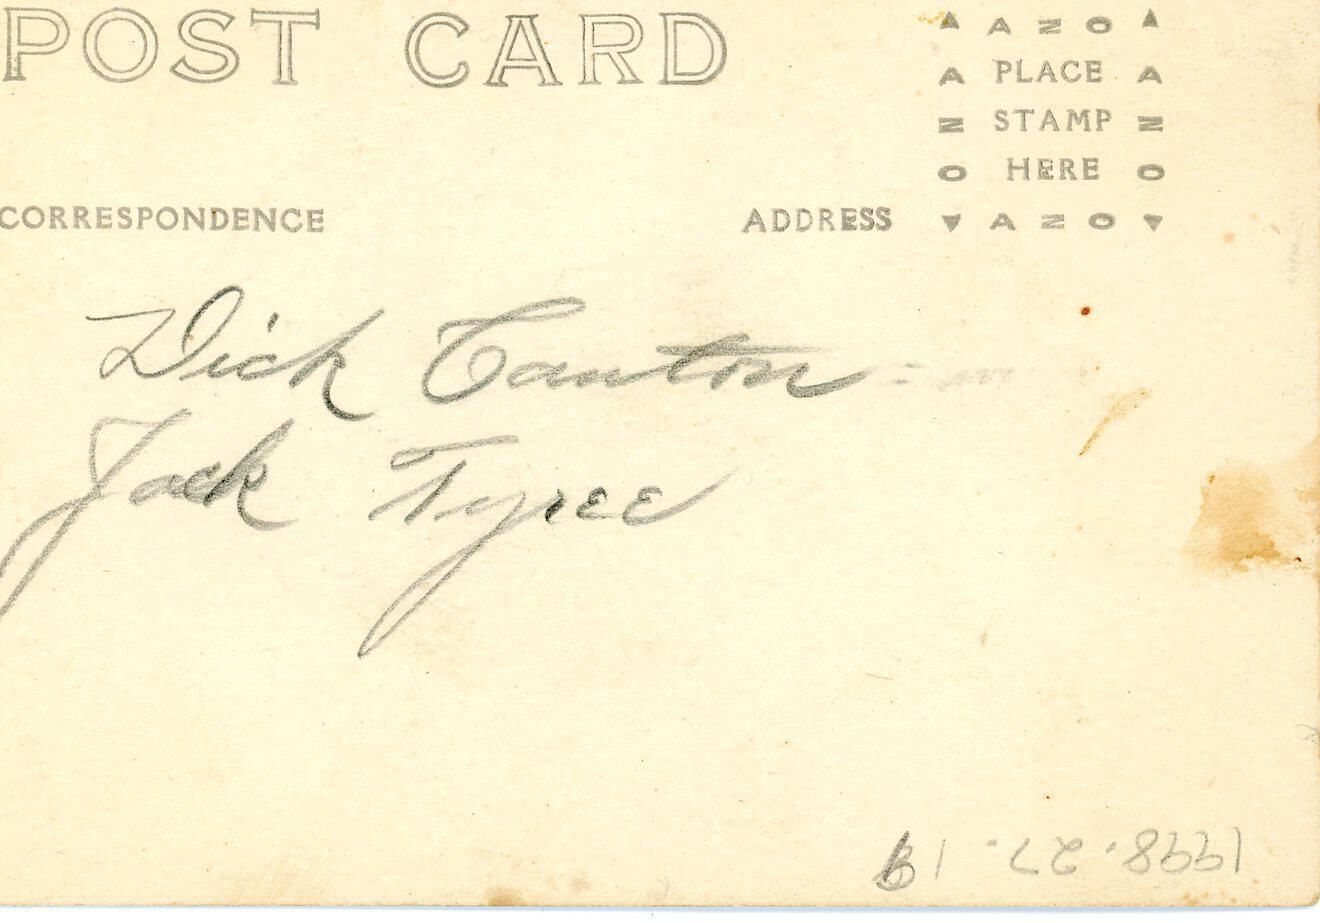 POST CARD
▲ AZO ▲
A PLACE A
Z STAMP Z
O HERE O
CORRESPONDENCE
ADDRESS
▼ AZO ▼
Dick Canton
Jack Tyree